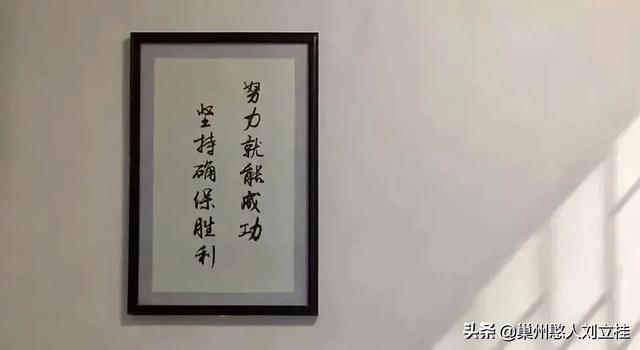 努力就能成功
坚持确保胜利
头条 @巢州憨人刘立桂